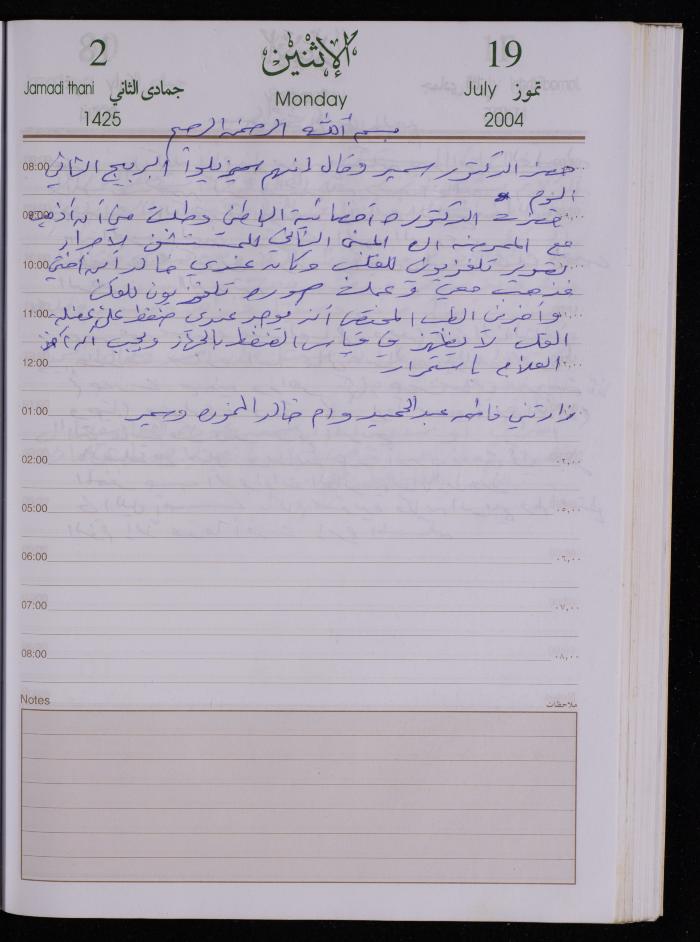 2 الإثنين 19
Jamadi thani جمادى الثاني Monday July تموز
1425 2004
بسم الله الرحمن الرحيم
08:00 حضر الدكتور سمير وقال انهم سيزيلوا البربيج الثاني
اليوم
09:00 حضرت الدكتوره أخصائية الباطن وطلبت مني أن أذهب
مع الممرضه الى المبنى الثاني للمستشفى لإجراء
10:00 تصوير تلفزيون للقلب وكان عندي خالد ابن أختي
فذهب معي وعملت صوره تلفزيون للقلب
11:00 وأخبرني الطبيب المختص أنه يوجد عندي ضغط على عضلة
القلب لا يظهر في قياس الضغط بالجهاز ويجب أن آخذ
12:00 العلاج باستمرار
01:00 زارتني فاطمه عبد الحميد وام خالد وسمير
02:00 ٠٢,٠٠
05:00 ٠٥,٠٠
06:00 ٠٦,٠٠
07:00 ٠٧,٠٠
08:00 ٠٨,٠٠
Notes ملاحظات